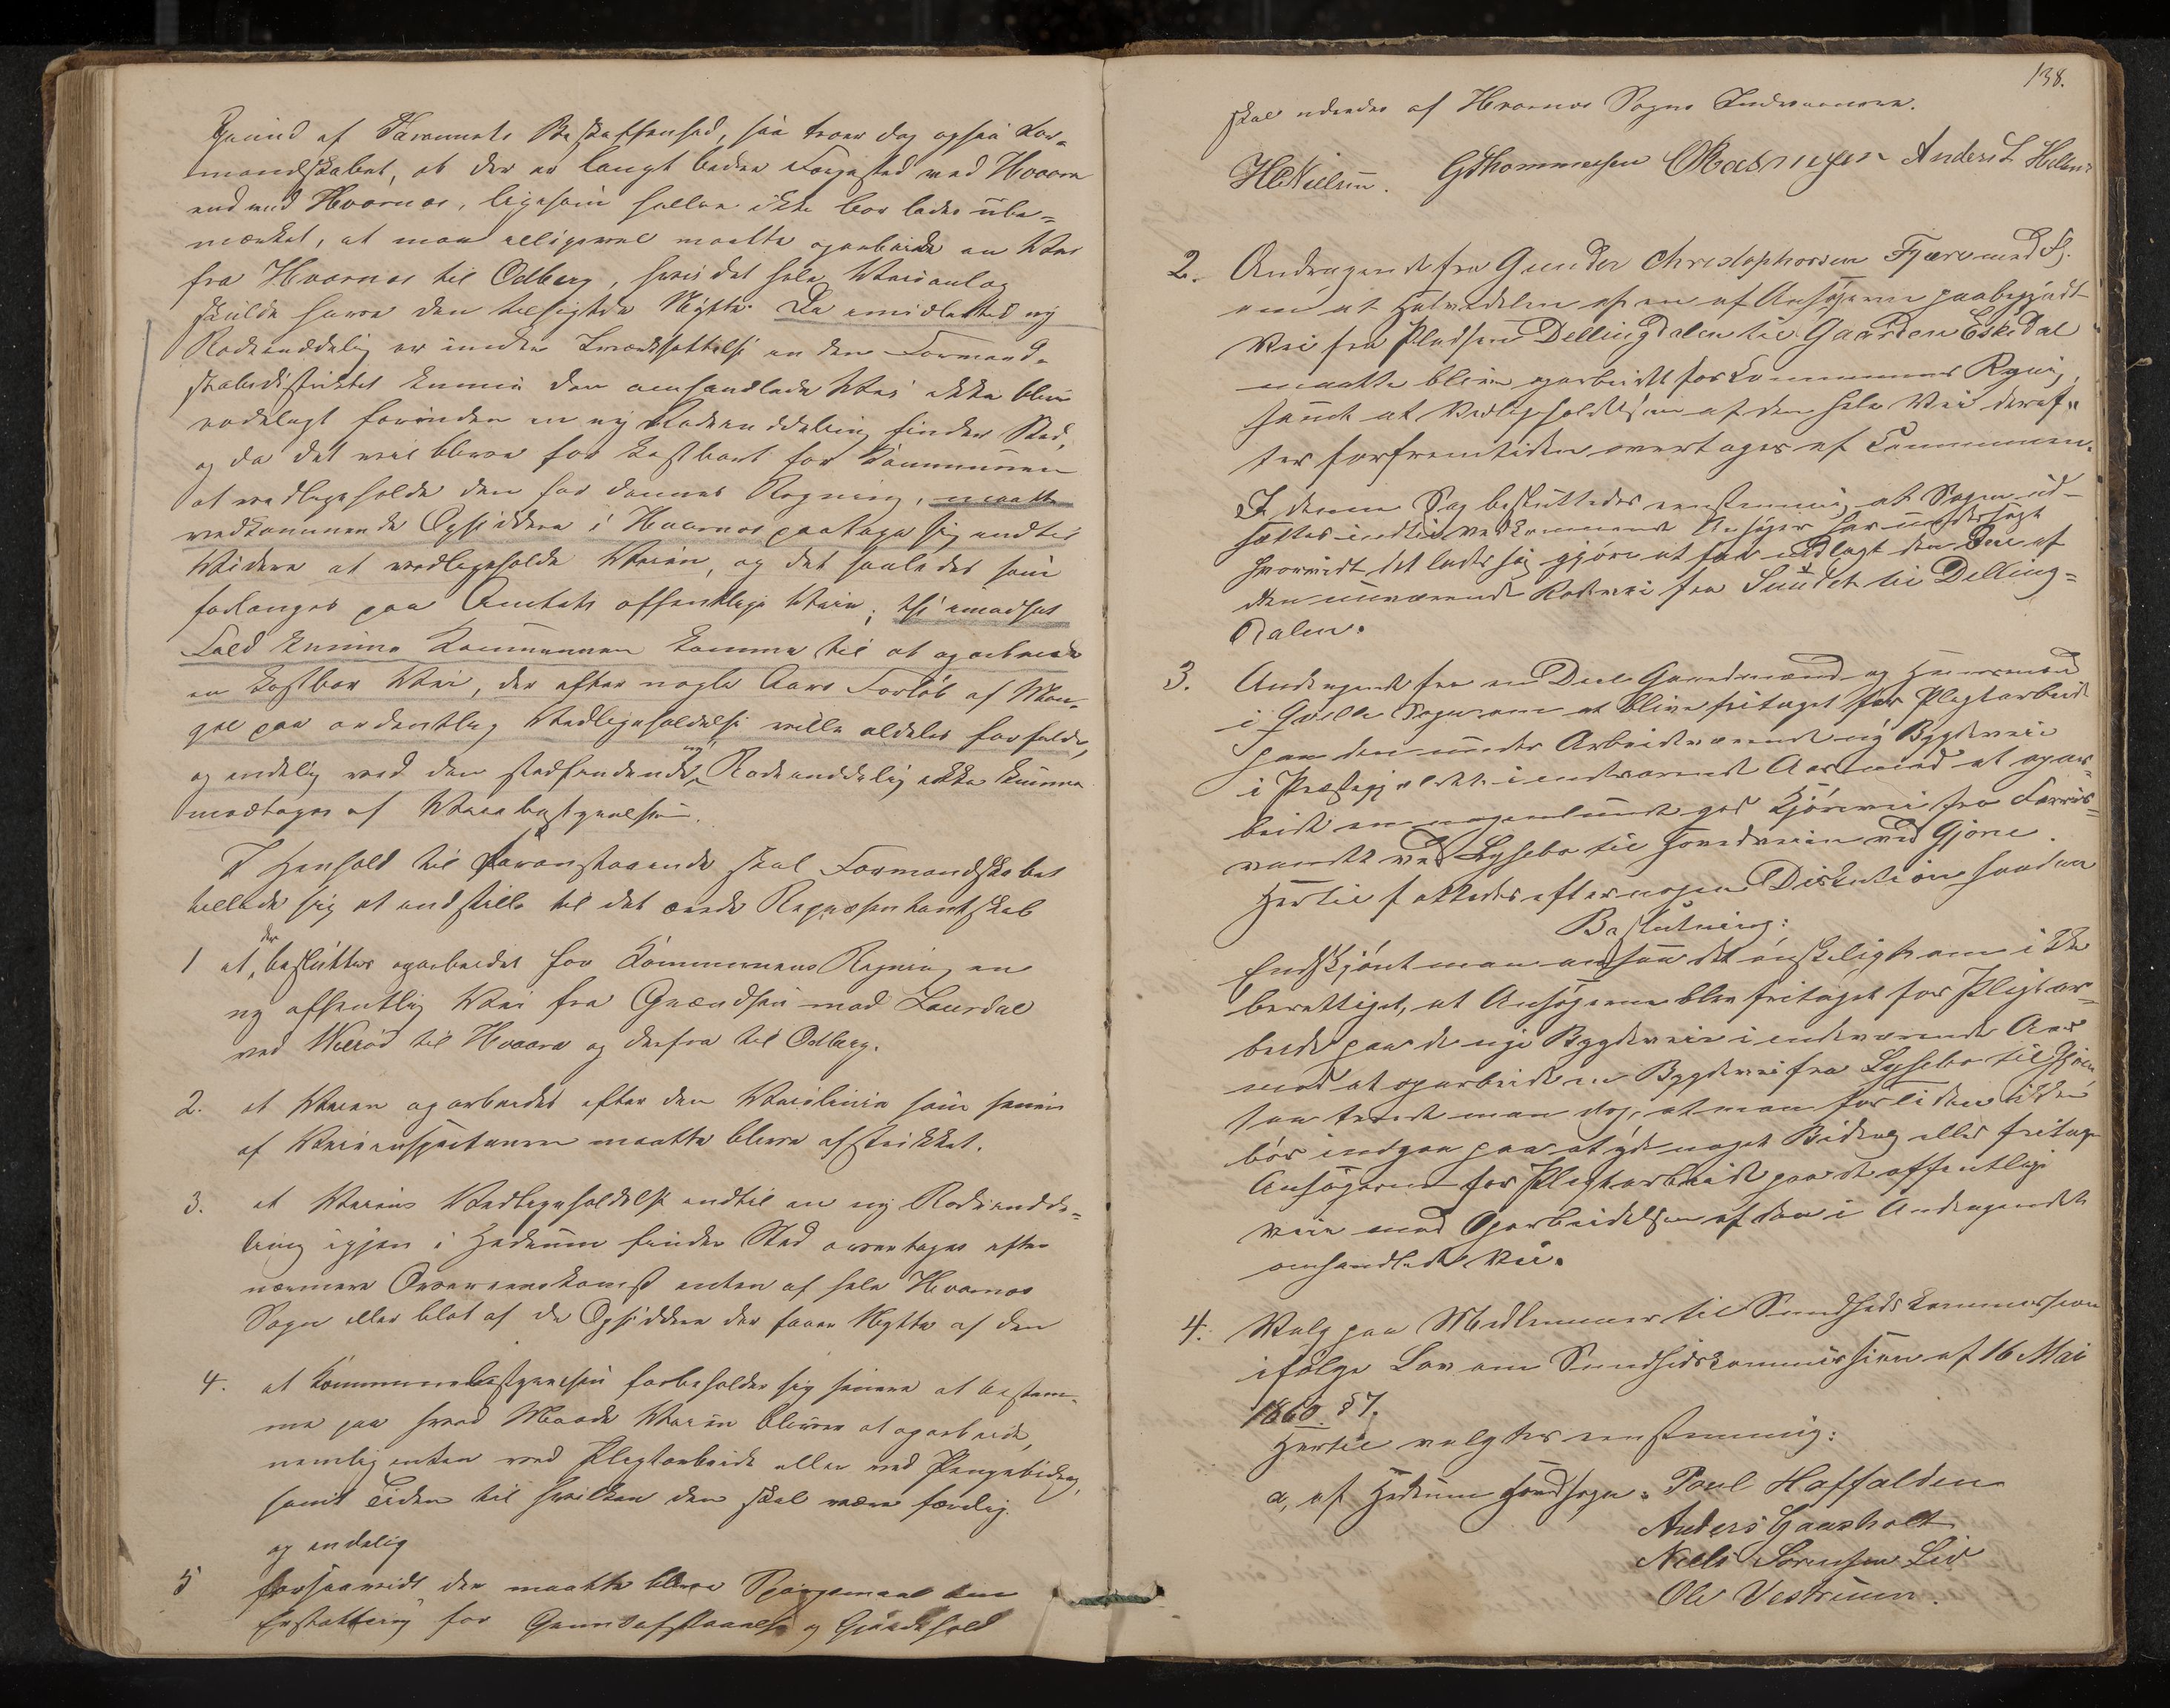 Grund af Farvannets Beskaffenhed, saa troer dog ogsaa For-
mandskabet, at der er langt bedre Færgested ved Hvaara
end ved Hvarnes, ligesom heller ikke bør lades ube-
mærket, at man alligevel maatte oparbeide en Vei
fra Hvarnes til Odberg, hvis det hele Veianlæg
skulde have den tilsigtede Nytte. Da imidlertid ny
Rodeinddeling er under Iværksættelse en den Formand-
skabsdistriktet kunne den omhandlede Vei ikke blive
rodelagt forinden en ny Rodeinddeling finder Sted,
og da det vil blive for kostbart for Kommunen
at vedligeholde den for dennes Regning, maatte
vedkommende Opsiddere i Hvarnes paatage sig indtil
Videre at vedligeholde Veien, og det saaledes som
forlanges paa Amtets offentlige Veie; thi i modsat
Fald kunne Kommunen komme til at oparbeide
en kostbar Vei, der efter nogle Aars Forløb af Man-
gel paa ordentlig Vedligeholdelse ville aldeles forfalde,
og endelig ved den stedfindende ny Rodeinddeling ikke kunne
modtages af Veibestyrelsen.
I Henhold til Foranstaaende skal Formandskabet
tillade sig at indstille til det ærede Repræsentantskab
1 at der besluttes oparbeidet for Kommunens Regning en
ny offentlig Vei fra Grændsen mod Laurdal
ved Wærød til Hvaara og derfra til Odberg.
2. at Veien oparbeides efter den Veilinie som senere
af Veiinspecteuren maatte blive afstikket.
3. at Veiens Vedligeholdelse indtil en ny Rodeindde-
ling igjen i Hedrum finder Sted overtages efter
nærmere Overeenskomst enten af hele Hvarnes
Sogn eller blot af de Opsiddere der faaer Nytte af den
4. at Kommunebestyrelsen forbeholder sig senere at bestem-
me paa hvad Maade Veien bliver at oparbeide,
nemlig enten ved Pligtarbeide eller ved Pengebidrag,
samt Tiden til hvilken den skal være færdig.
og endelig
5 forsaavidt der maatte blive Spørgsmaal om
Erstatning for Grundafstaaelse og Gjærdehold
138.
skal udredes af Hvarnes Sogns Indvaanere.
HCNielsen. GThommesen CRasmussen Anders L Holm
2. Andragende fra Gunder Christophersen Fjære med Fl.
om at Halvdelen af en af Ansøgerne paabegyndt
Vei fra Pladsen Dellingdalen til Gaarden Eskedal
maatte blive oparbeidet for Kommunens Regning,
samt at Vedligeholdelsen af den hele Vei deref-
ter for Fremtiden overtages af Communen.
I denne Sag besluttedes eenstemmig at Sagen ud-
sættes indtil vedkommende Ansøger har undersøgt
hvorvidt det lader sig gjøre at faa nedlagt den Deel af
den nuværende Rodevei fra Sundet til Delling-
dalen.
3. Andragende fra en Deel Gaardmænd og Huusmænd
i Qvelle Sogn om at blive fritaget for Pligtarbeide
paa den under Arbeide værende ny Bygdevei
i Præstegjeldet i indeværende Aar mod at opar-
beide en nogenlunde god Kjørevei fra Farris-
vandet ved Lysebo til Hovedveien ved Gjone.
Hertil fattedes efter nogen Diskution saadan
Beslutning:
Endskjønt man ansaa det ønskeligt om ikke
berettiget, at Ansøgerne blev fritaget for Pligtar-
beide paa de nye Bygdeveie i indeværende Aar
mod at oparbeide en Bygdevei fra Lysebo til Gjone,
saa troede man dog, at man for Tiden ikke
bør indgaa paa at yde noget Bidrag eller fritage
Ansøgerne for Pligtarbeide paa de offentlige
Veie mod Oparbeidelsen af den i Andragendet
omhandlede Vei.
4. Valg paa Medlemmer til Sundhedskommissionen
ifølge Lov om Sundhedskommissioner af 16 Mai
1860 § 7.
Hertil valgtes eenstemmig:
a, af Hedrum Hovedsogn: Poul Haffalden
Anders Gaasholt
Niels Sørensen Lid
Ole Vestrum.